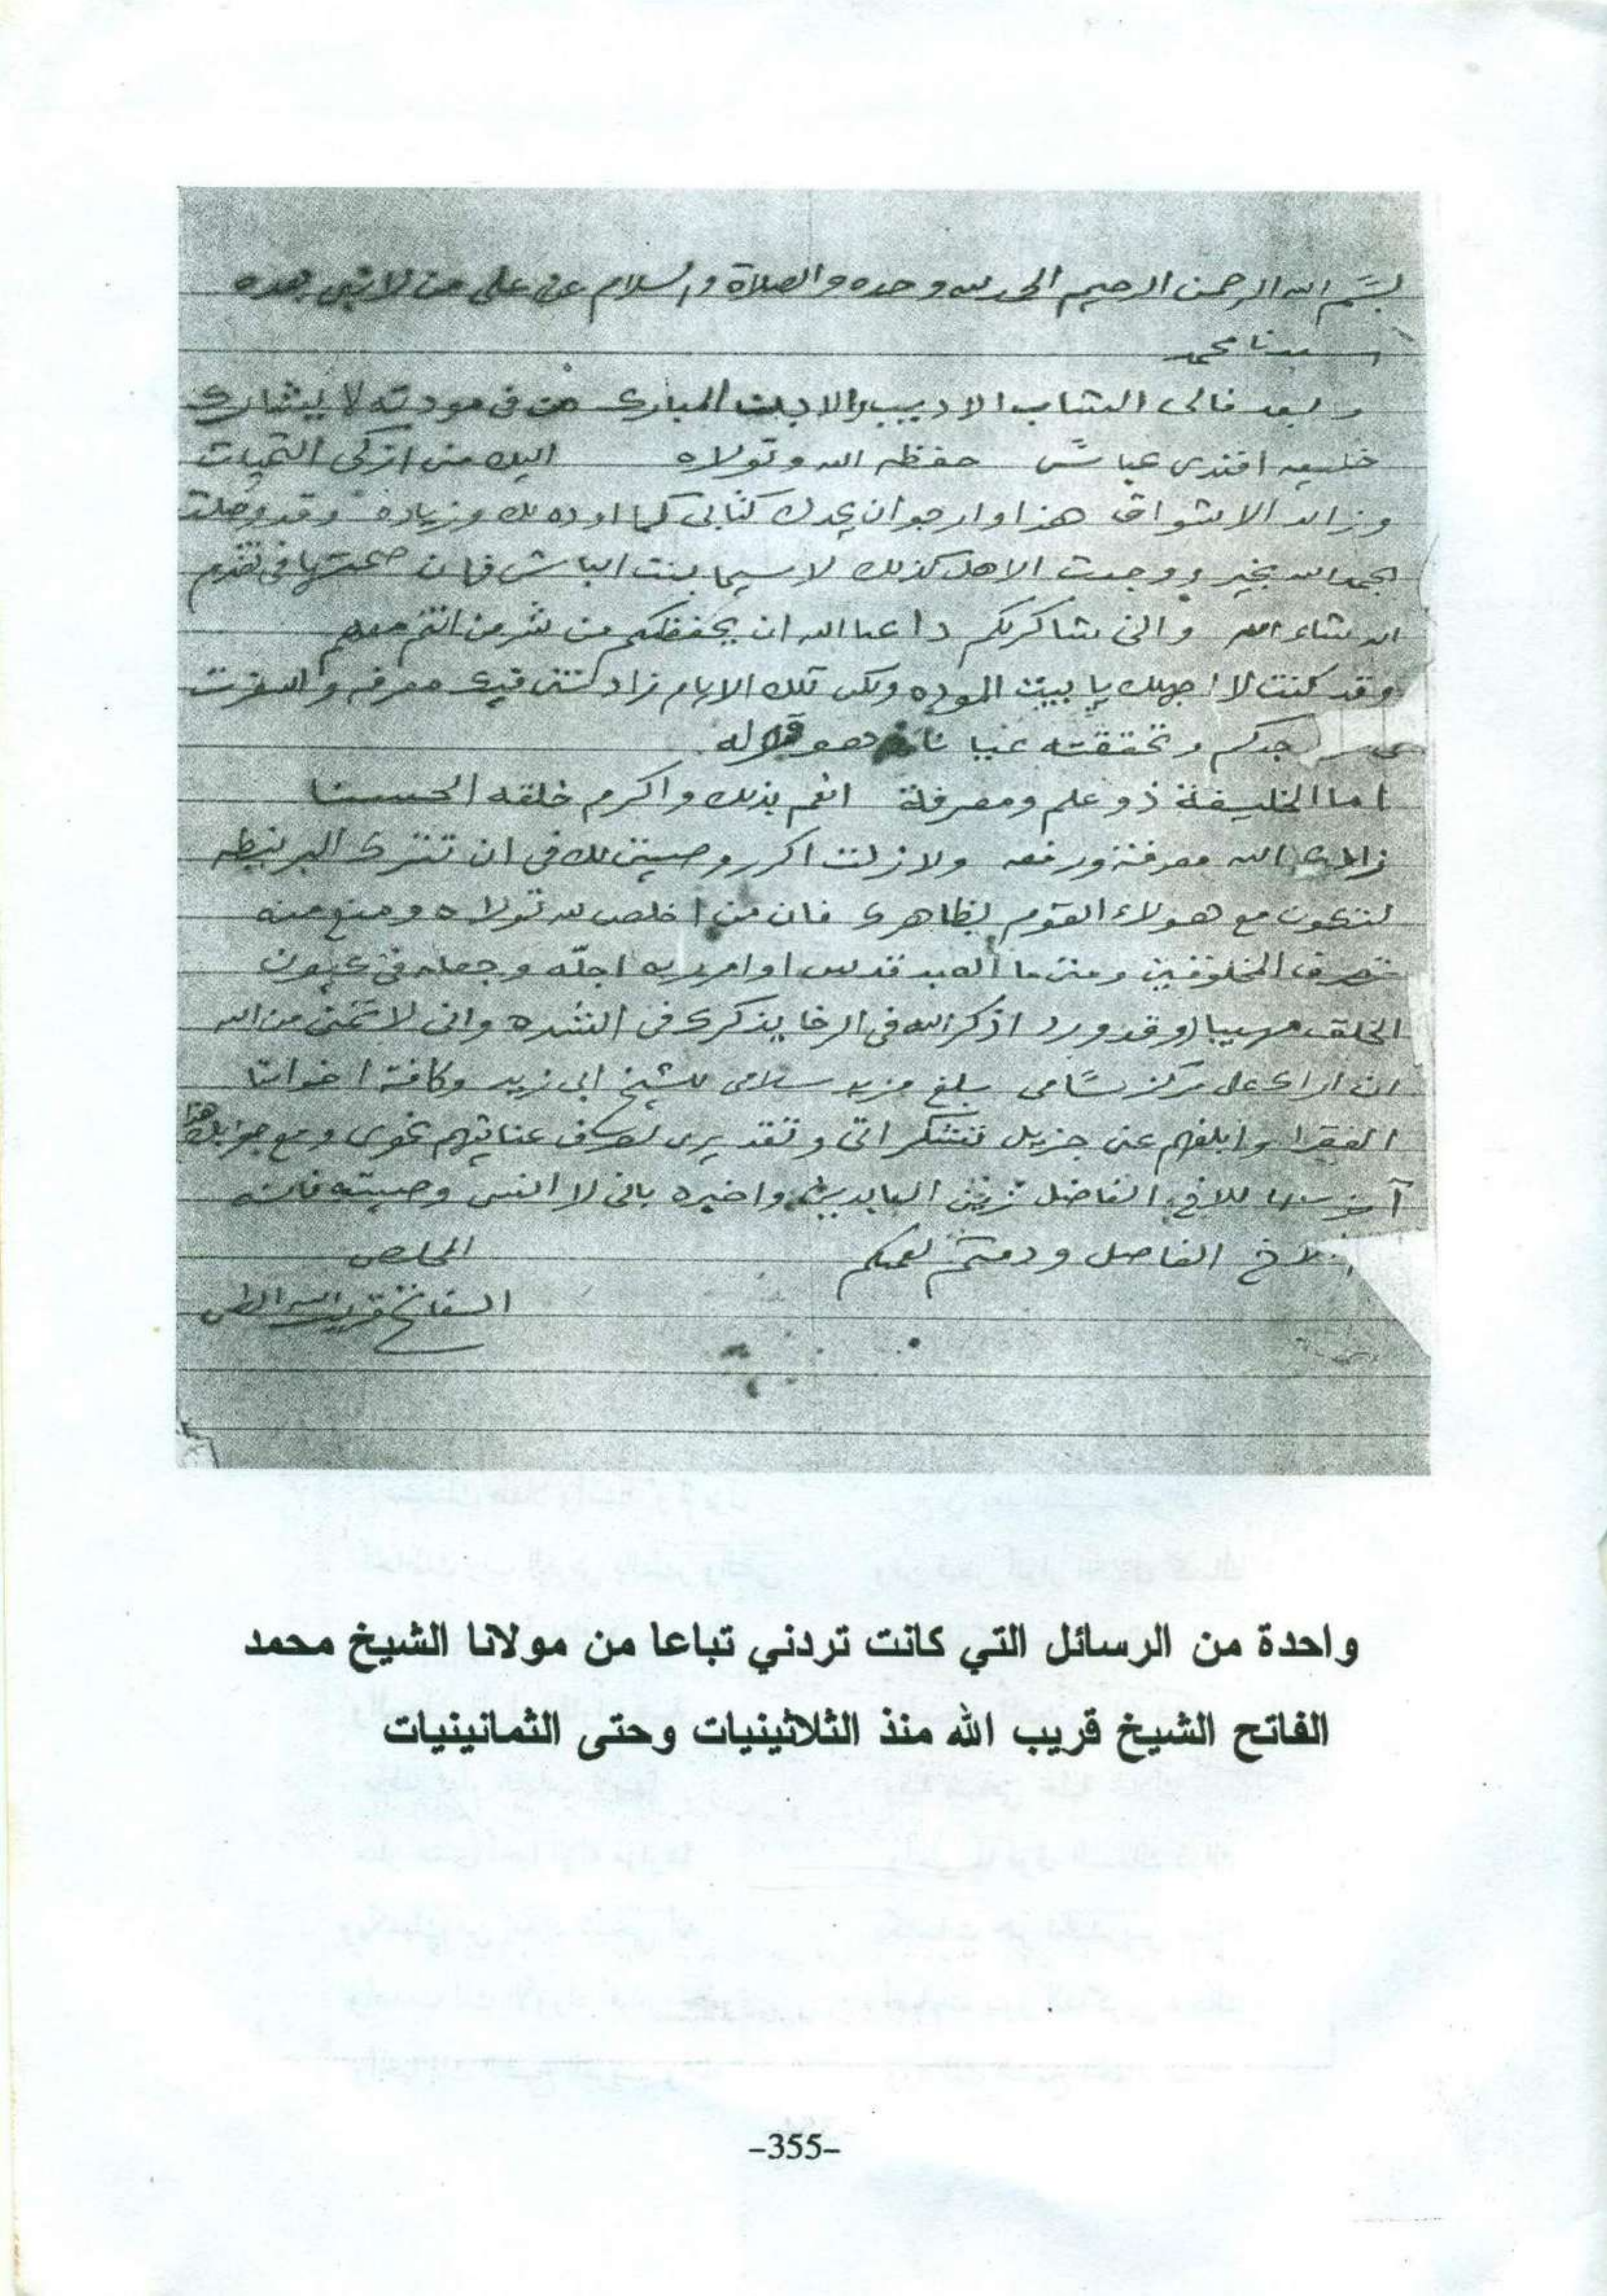 بسم الله الرحمن الرحيم الحمد لله وحده والصلاة والسلام على من لا نبي بعده
سيدنا محمد
وبعد فالى الشاب الاديب والابن المبارك من في مودته لا يشارك
خليفه افندى عباس حفظه الله وتولاه اليك منى ازكى التحيات
وزائد الاشواق هذا وارجو ان يجدك كتابى كما اوده لك وزياده وقد وصلت
بحمد الله بخير ووجدت الاهل كذلك لا سيما بنت الباش فان صحتها فى تقدم
ان شاء الله وانى شاكركم داعيا الله ان يحفظكم من شر من انتم معهم
وقد كنت لا اجهلك يا بيت الموده ولكن تلك الايام زادتنى فيك معرفه
جدكم وتحققته
اما الخليفة ذو علم ومعرفة انعم بذلك واكرم خلقه الحسنا
زادك الله معرفة ورفعه ولا زلت اكرر وصيتى لك فى ان تترك البرنيطه
لتكون مع هولاء القوم بظاهرك فان من اخلص لله تولاه ومنع منه
تصرف المخلوقين ومتى ما العبد قدس اوامر ربه اجله وجعله فى عيون
الخلق مهيبا وقد ورد اذكر الله فى الرخا يذكرك فى الشده وانى لاتمنى من الله
ان اراك على مركز سامى بلغ مزيد سلامى للشيخ ابى زيد وكافة اخواننا
الفقرا وابلغهم عنى جزيل تشكراتى وتقديرى عنايتهم نحوى ومع جوابك هذا
للاخ الفاضل زين العابدين واخبره بانى لا انسى وصيته فانه
الاخ الفاضل ودمتم لعمكم المخلص
الفاتح قريب الله
واحدة من الرسائل التي كانت تردني تباعا من مولانا الشيخ محمد
الفاتح الشيخ قريب الله منذ الثلاثينيات وحتى الثمانينيات
-355-